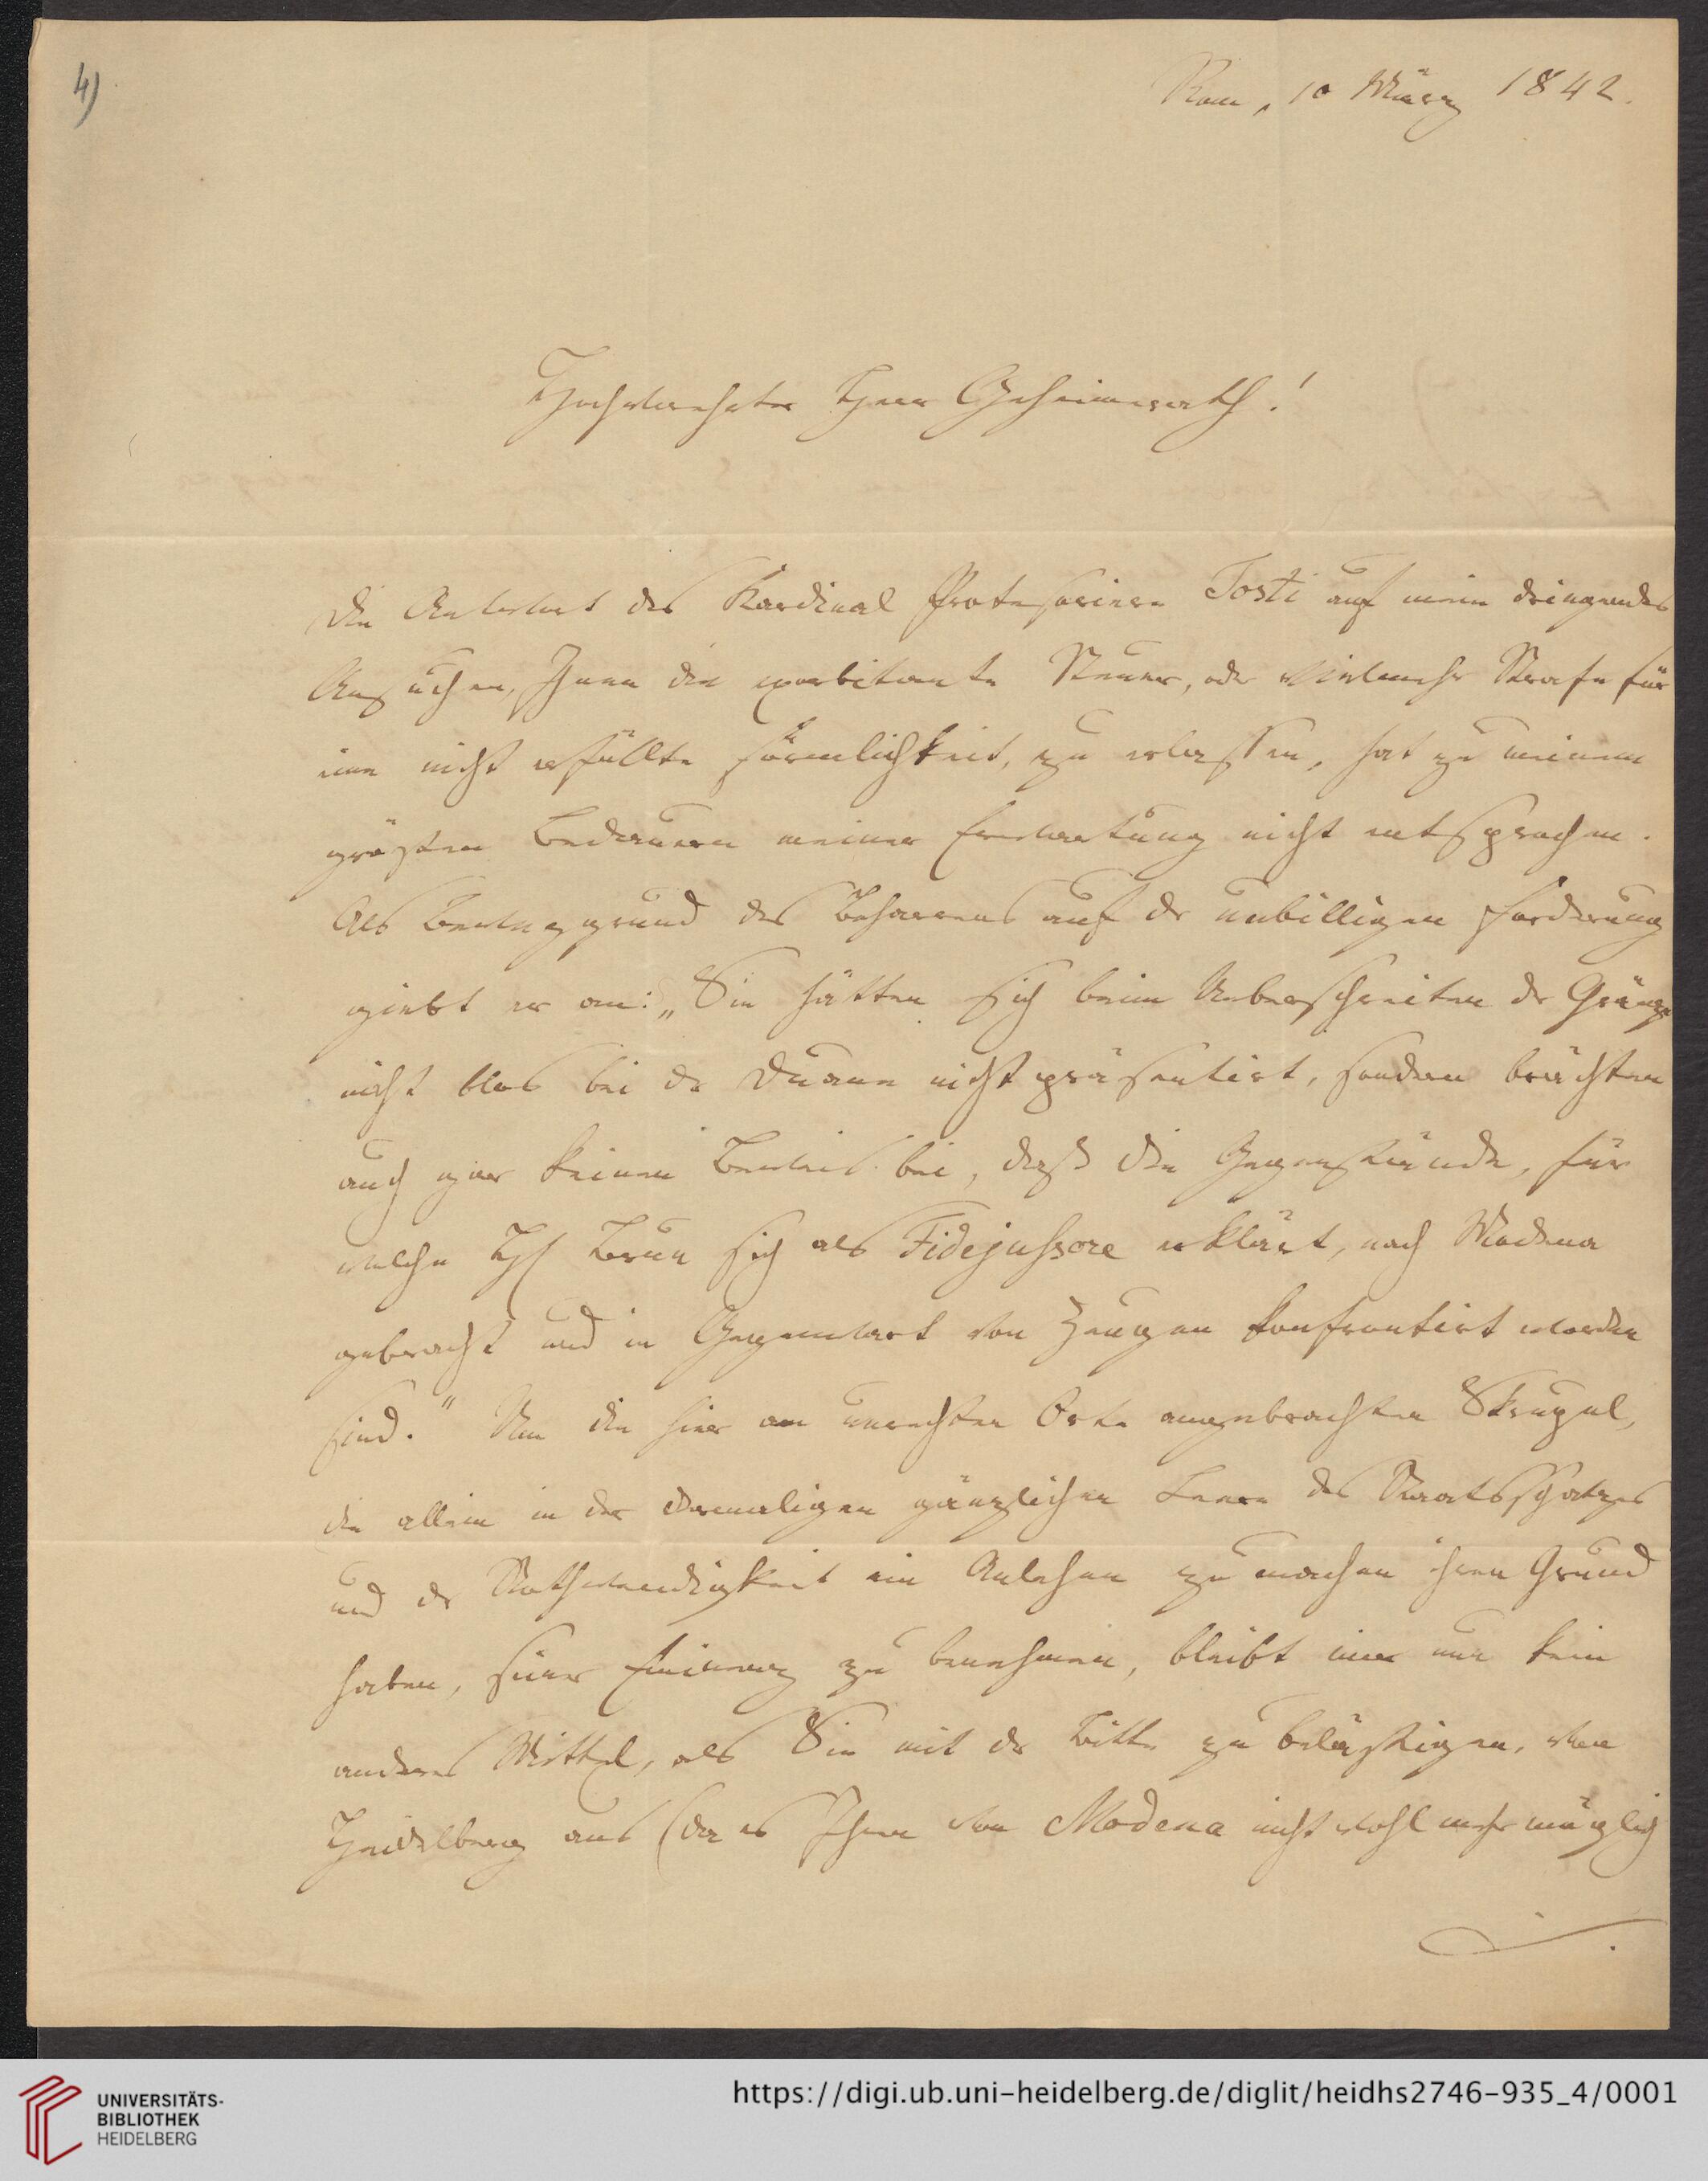 4)
Rom, 10 März 1842.
Hochverehrter Herr Geheimerath!
Die Antwort des Kardinal Protesoriere Tosti auf mein dringendes
Ansuchen, Ihnen die exorbitante Steuer, oder vielmehr Strafe für
eine nicht erfüllte Förmlichkeit, zu erlassen, hat zu meinem
größten Bedauern meiner Erwartung nicht entsprochen.
Als Beweggrund des Beharrens auf der unbilligen Forderung
giebt er an: „Sie hätten sich beim Ueberschreiten der Gränze
nicht blos bei der Duane nicht präsentirt, sondern brächten
auch gar keinen Beweis bei, daß die Gegenstände, für
welche H. Braun sich als Fidejussore erklärt, nach Modena
gebracht und in Gegenwart von Zeugen konfrontirt worden
sind." Um die hier am unrechten Orte angebrachten Skrupel,
die allein in der dermaligen gänzlichen Leere des Staatsschatzes
und der Nothwendigkeit ein Anlehen zu machen ihren Grund
haben, seiner Eminenz zu benehmen, bleibt mir nur kein
anderes Mittel, als Sie mit der Bitte zu belästigen, von
Heidelberg aus (da es Ihnen von Modena nicht wohl mehr möglich
UNIVERSITÄTS-
BIBLIOTHEK
HEIDELBERG
https://digi.ub.uni-heidelberg.de/diglit/heidhs2746-935_4/0001